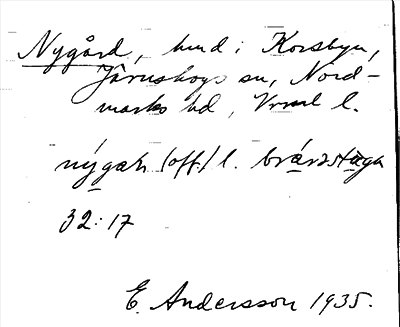 Nygård, hmd i Korsbyn,
Järnskogs sn, Nord-
marks hd, Vrml l.
nýgaɳ (off) l.
32:17
E. Andersson 1935.